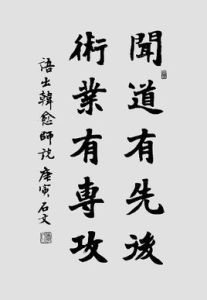 聞道有先後
術業有専攻
語出韓愈師說 庚寅 石文